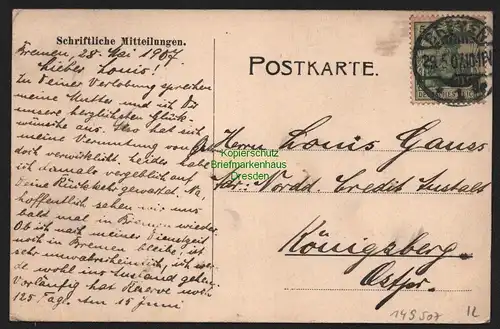 Schriftliche Mitteilungen.
Bremen, 28. Mai 1907
Liebes Louis!
Zu deiner Verlobung sprechen
meine Mutter und ich dir
unsere herzlichsten Glück-
wünsche aus. Das hat sich
meine Vermutung von
doch verwirklicht. Leider habe
ich damals vergeblich auf
deine Rückkehr gewartet. Na,
hoffentlich sehen wir uns
bald mal in Bremen wieder.
Ob ich nach meiner Dienstzeit
noch in Bremen bleibe, ist
sehr unwahrscheinlich, ich wer-
de wohl ins Ausland gehen.
Vorläufig hat Reserve noch
125 Tage. Am 15 Juni
POSTKARTE.
Herrn Louis Gauss
Nordd Credit Anstalt
Königsberg
Ostpr.
Kopierschutz
Briefmarkenhaus
Dresden
149 507